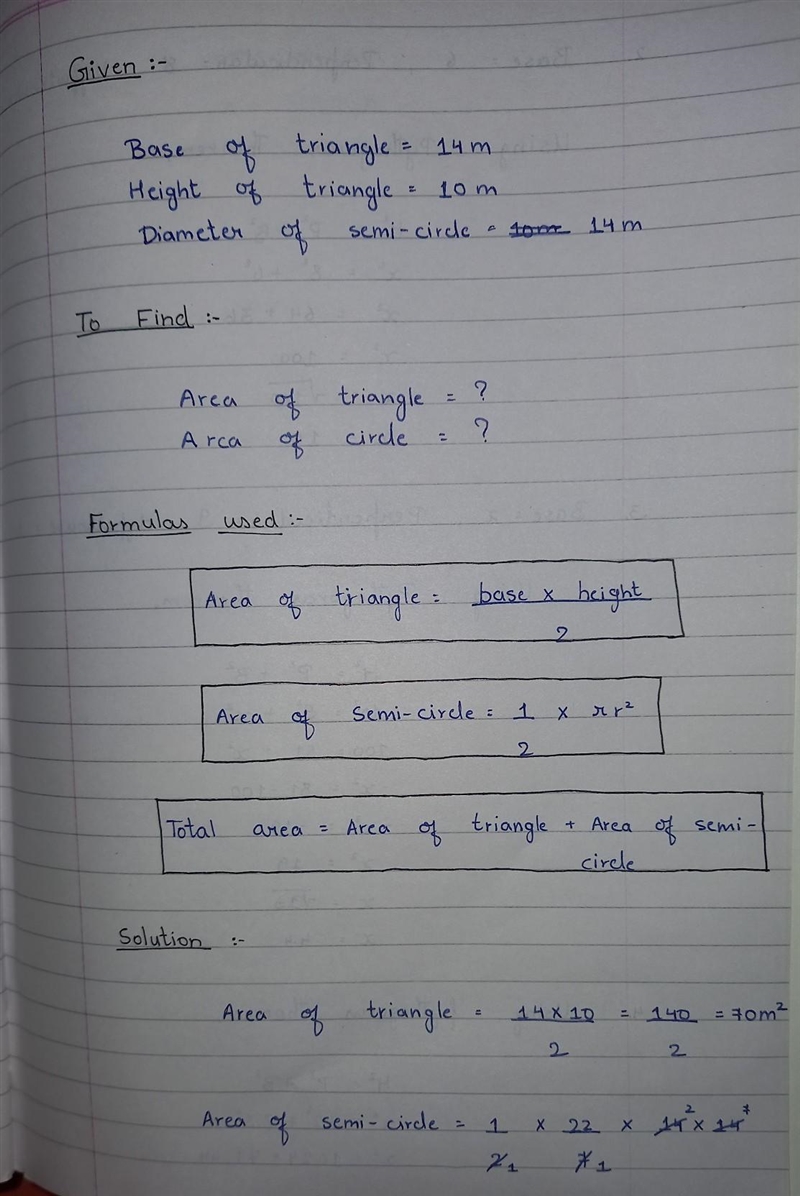 Given :-
Base of triangle = 14 m
Height of triangle = 10 m
Diameter of semi-circle = 10m 14 m
To Find :-
Area of triangle = ?
Area of circle = ?
Formulas used :-
Area of triangle = base x height / 2
Area of semi-circle = 1/2 x π r²
Total area = Area of triangle + Area of semi-
circle
Solution :-
Area of triangle = 14 x 10 / 2 = 140 / 2 = 70m²
Area of semi-circle = 1/2 1 x 22/7 1 x 14 2 x 14 7